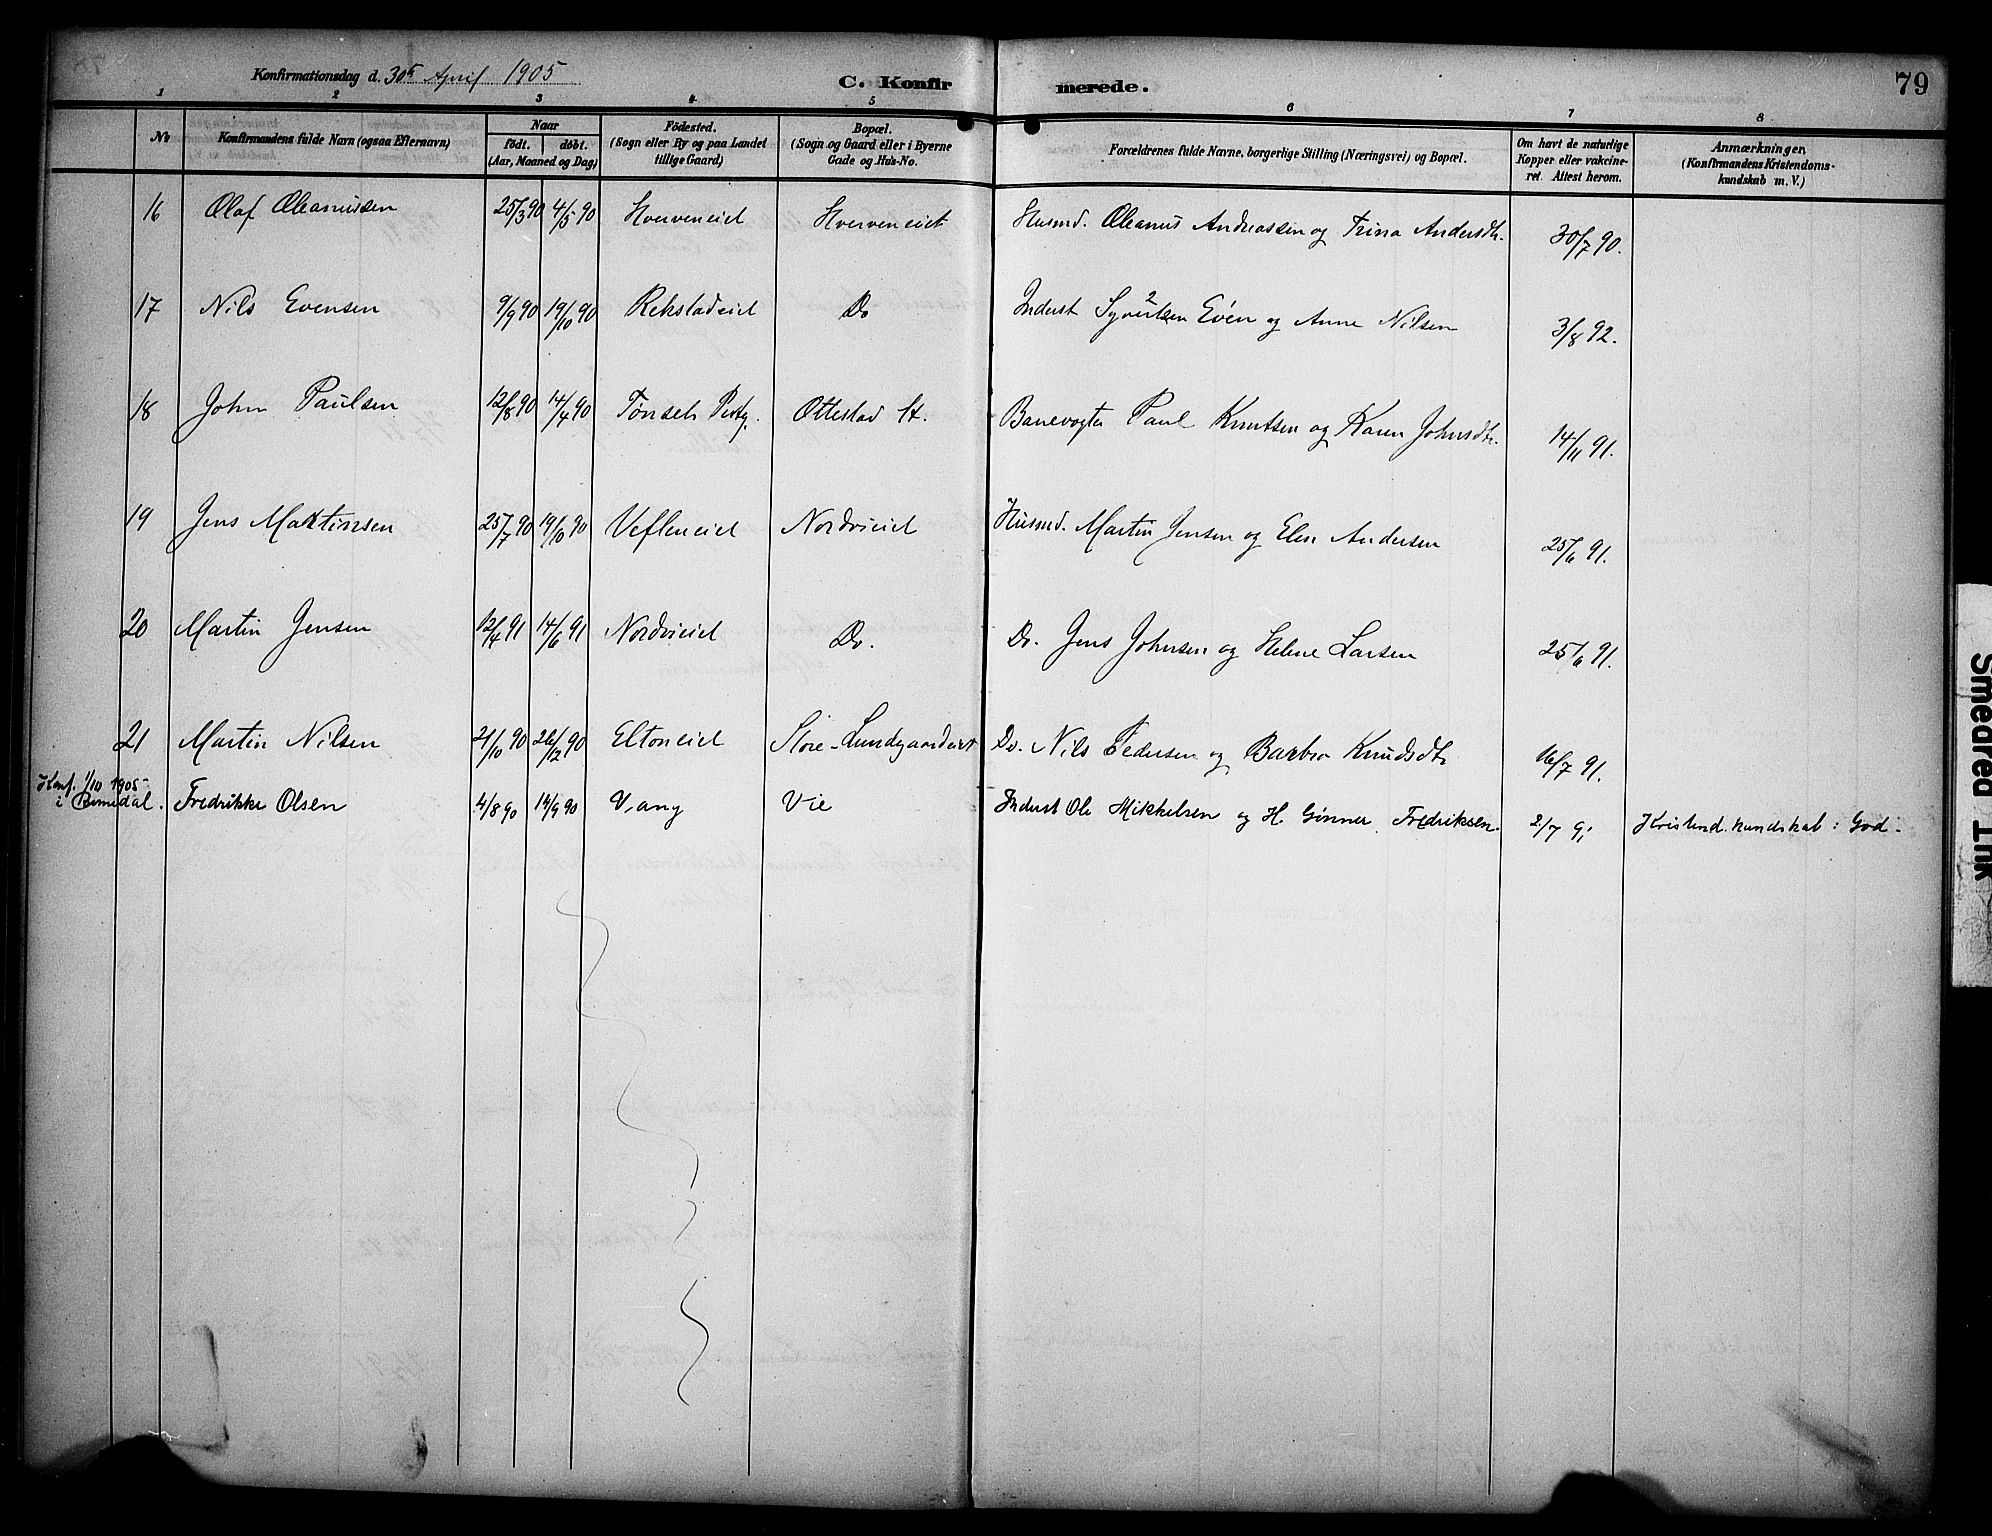 Konfirmationsdag d. 30te April 1905
C. Konfirmerede.
79
1 2 3 4 5 6 7 8
No
Konfirmandens fulde Navn (ogsaa Efternavn)
Naar
født. døbt.
(Aar, Maaned og Dag)
Fødested.
(Sogn eller By og paa Landet
tillige Gaard)
Bopæl.
(Sogn og Gaard eller i Byerne
Gade og Hus-No.
Forældrenes fulde Navne, borgerlige Stilling (Næringsvei) og Bopæl.
Om havt de naturlige
Kopper eller vakcine-
ret. Attest herom.
Anmærkninger,
(Konfirmandens Kristendoms-
kundskab m. V.)
16 Olaf Oleanussen 25/3 90 4/5 90 Hverveneiet Hverveneiet Husmd. Oleanus Andreassen og Trina Andersdt. 30/7 90.
17 Nils Evensen 9/9 90 19/10 90 Rekstadeiet Do Inderst Syvertsen Even og Anne Nilsen 3/8 92.
18 John Paulsen 12/8 90 14/4 90 Tønsets Pstg. Ottestad St. Banevogter Paul Knutsen og Karen Johnsdt. 14/11 91.
19 Jens Martinsen 25/7 90 19/10 90 Vefleneiet Nordvieiet Husmd. Martin Jensen og Elen Andersen 25/6 91.
20 Martin Jensen 12/4 91 14/6 91 Nordvieiet Do. Do. Jens Johnsen og Helene Larsen 25/6 91.
21 Martin Nilsen 21/10 90 26/12 90 Eltoneiet Store-Lundgaardeiet Do. Nils Pedersen og Barbro Knudsdt. 16/7 91.
Konf. 1/10 1905
i Romedal. Fredrikke Olsen 4/8 90 14/9 90 Vang Vie Inderst Ole Mikkelsen og H. Gønner Fredriksen. 2/7 91 Kristend. kundskab: God.
Smeared Ink